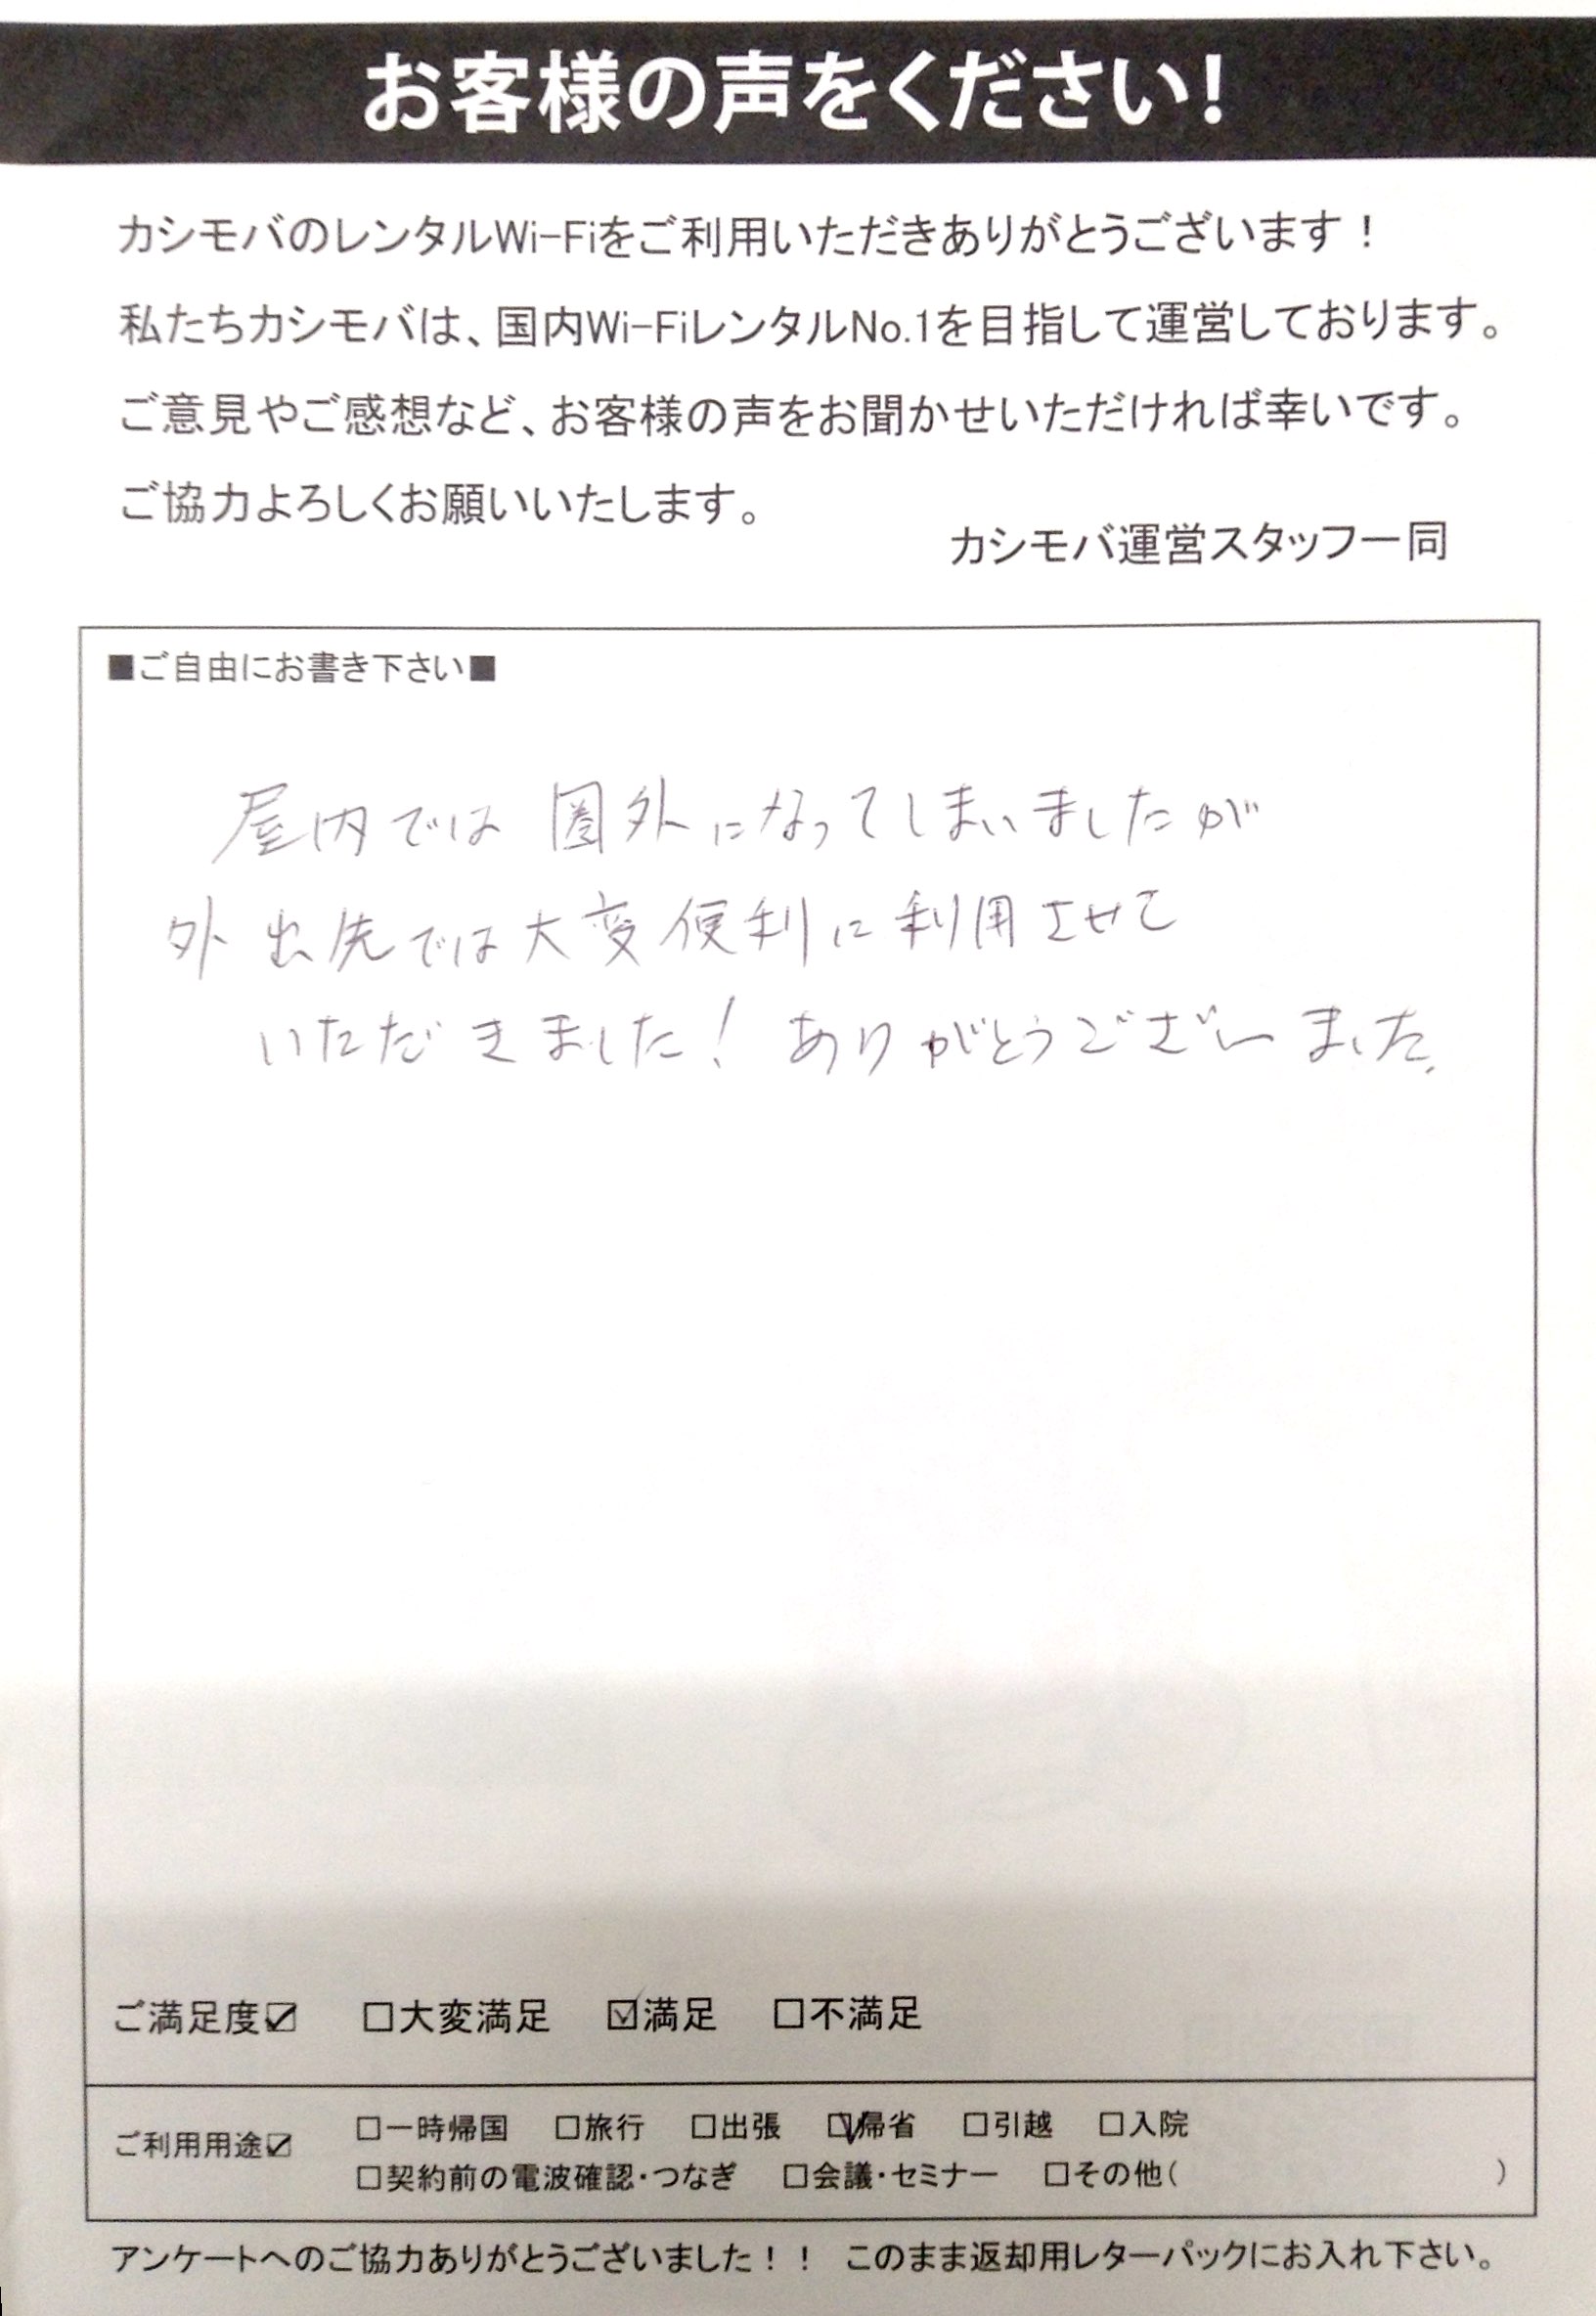 お客様の声をください!
カシモバのレンタルWi-Fiをご利用いただきありがとうございます！
私たちカシモバは、国内Wi-FiレンタルNo.1を目指して運営しております。
ご意見やご感想など、お客様の声をお聞かせいただければ幸いです。
ご協力よろしくお願いいたします。
カシモバ運営スタッフ一同
■ご自由にお書き下さい■
屋内では圏外になってしまいましたが
外出先では大変便利に利用させて
いただきました！ ありがとうございました.
ご満足度☑ □大変満足 ☑満足 □不満足
ご利用用途☑ □一時帰国 □旅行 □出張 ☑帰省 □引越 □入院
□契約前の電波確認・つなぎ □会議・セミナー □その他( )
アンケートへのご協力ありがとうございました！！ このまま返却用レターパックにお入れ下さい。